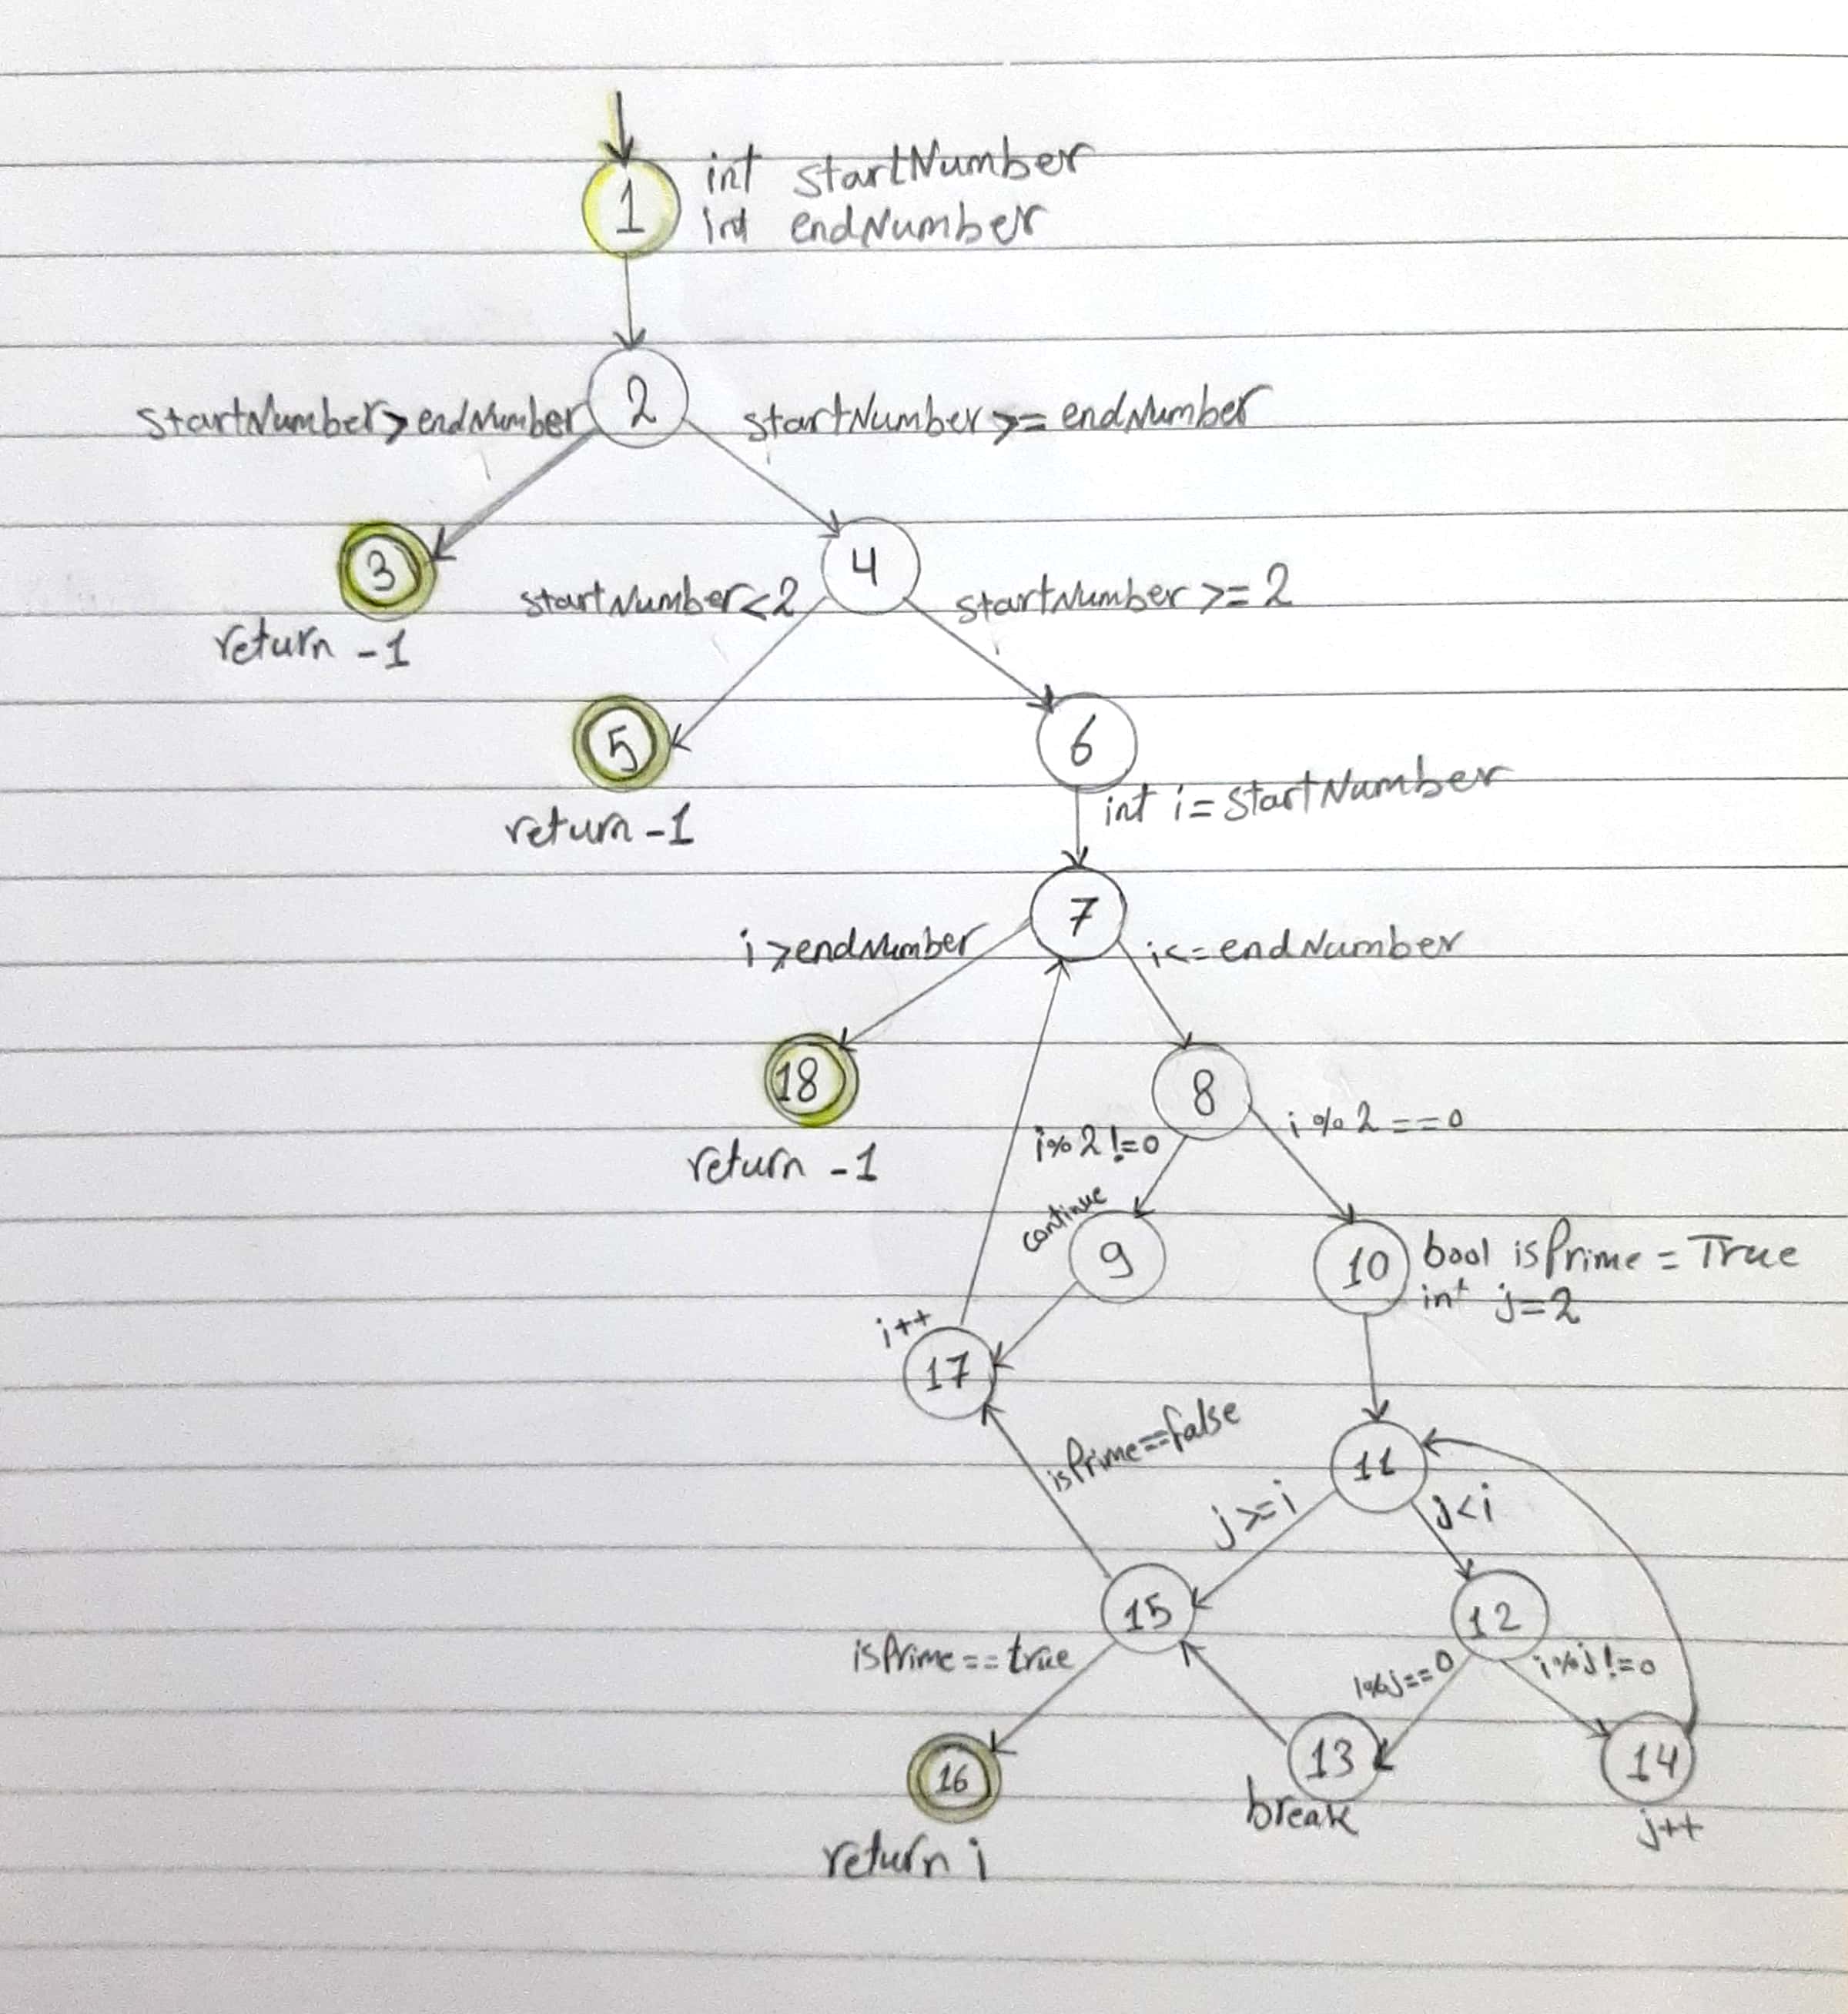 int startNumber
1
int endNumber
2
startNumber>endNumber
startNumber>=endNumber
3
4
return -1
startNumber<2
startNumber>=2
5
6
return -1
int i=startNumber
7
i>endNumber
i<=endNumber
18
8
return -1
i%2!=0
i%2==0
continue
9
10
bool isPrime=True
int j=2
i++
17
isPrime==false
11
j>=i
j<i
15
12
isPrime==true
i%j==0
i%j!=0
16
13
14
return i
break
j++